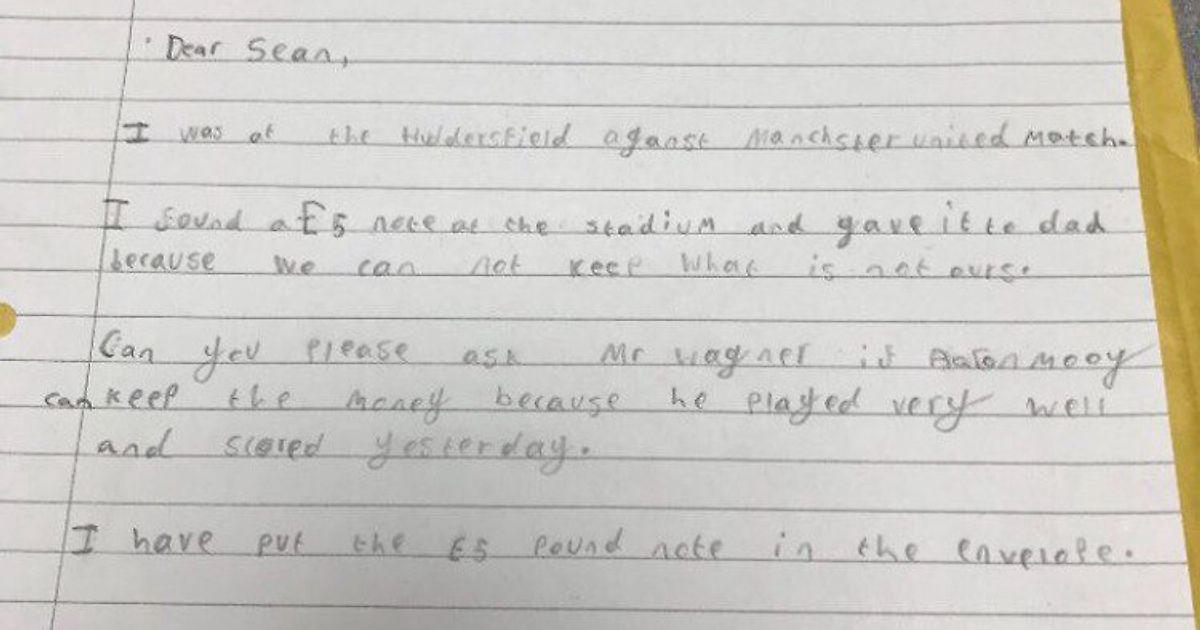 Dear Sean,
I was at the Huddersfield aganst Manchster united Match.
I found a £5 note at the stadium and gave it to dad
because we can not keep what is not ours.
Can you please ask Mr wagner if Aaron mooy
can keep the money because he played very well
and scored yesterday.
I have put the £5 pound note in the envelope.